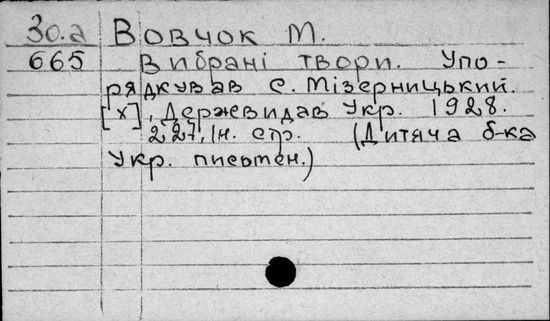 30.а Вовчок М.
665 Вибрані твори. Упо-
рядкував Є. Мізерницький.
[х], Держвидав Укр. 1928.
227, Ін. стр. (Дитяча б-ка
Укр. письмен.)